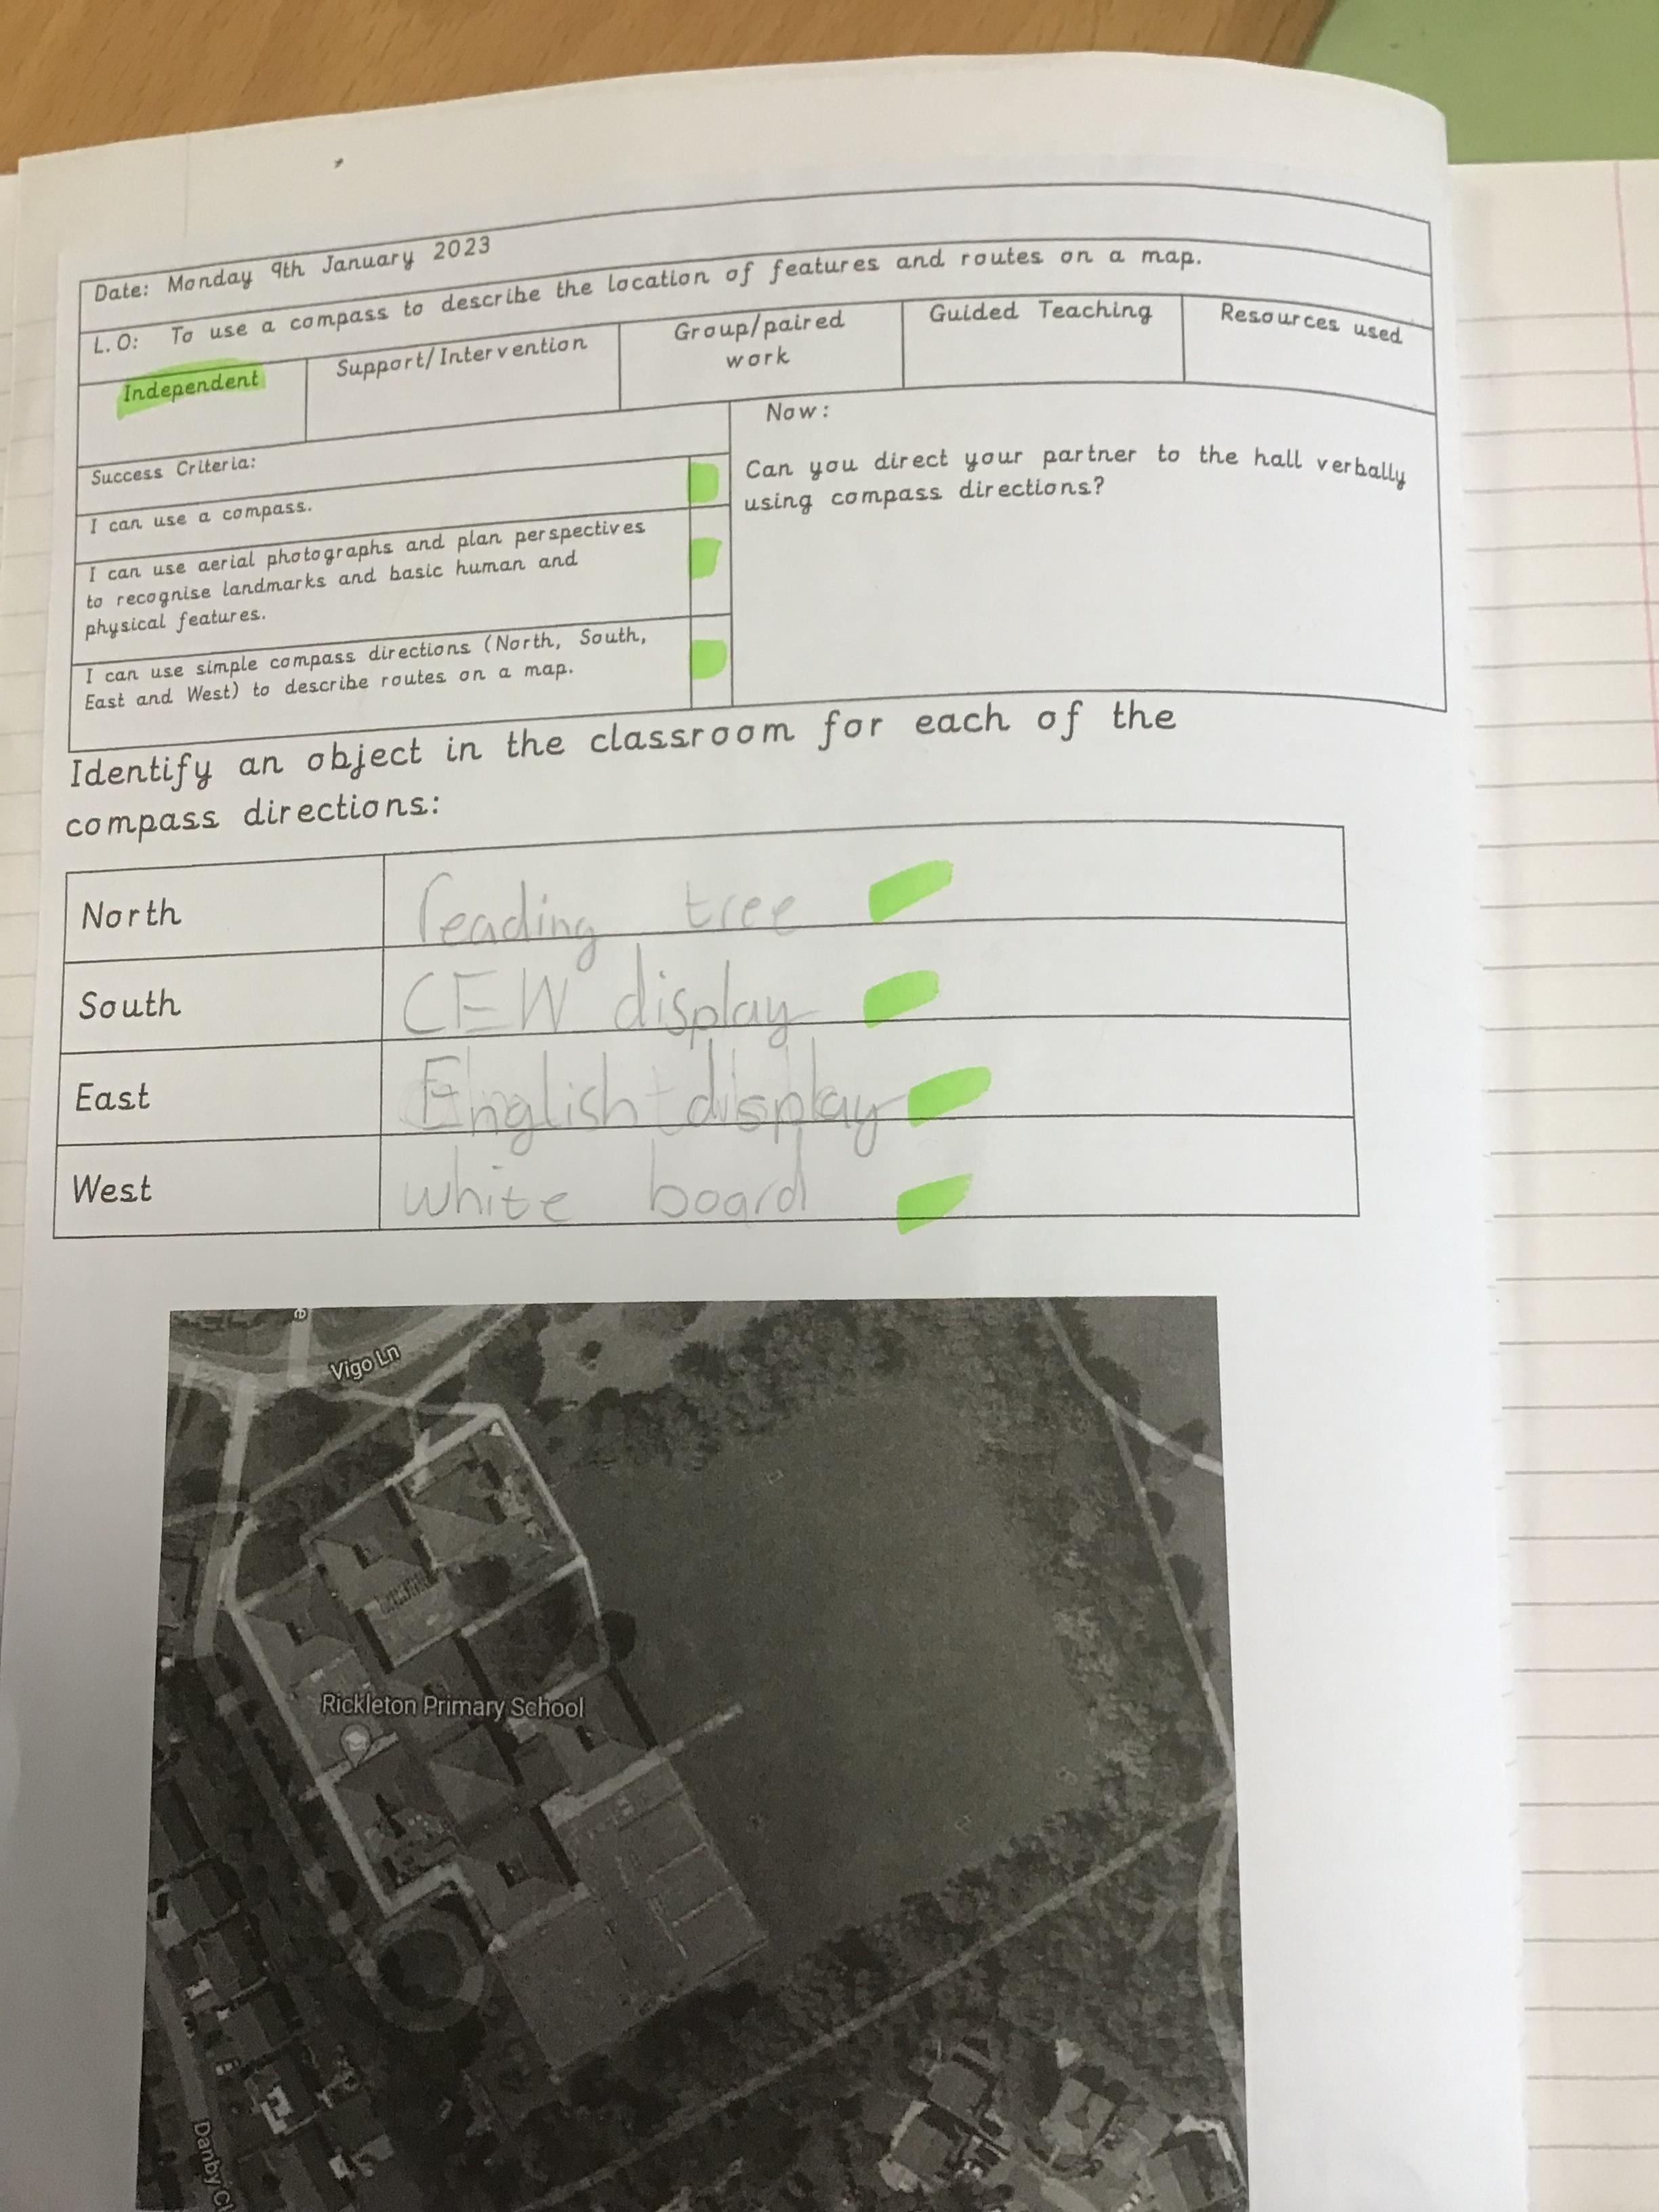 Date: Monday 9th January 2023
L.O: To use a compass to describe the location of features and routes on a map.
Independent
Support/Intervention
Group/paired
work
Guided Teaching
Resources used
Success Criteria:
I can use a compass.
I can use aerial photographs and plan perspectives
to recognise landmarks and basic human and
physical features.
I can use simple compass directions (North, South,
East and West) to describe routes on a map.
Now:
Can you direct your partner to the hall verbally
using compass directions?
Identify an object in the classroom for each of the
compass directions:
North reading tree
South CEW display
East English display
West white board
Vigo Ln
Rickleton Primary School
Danby Cl